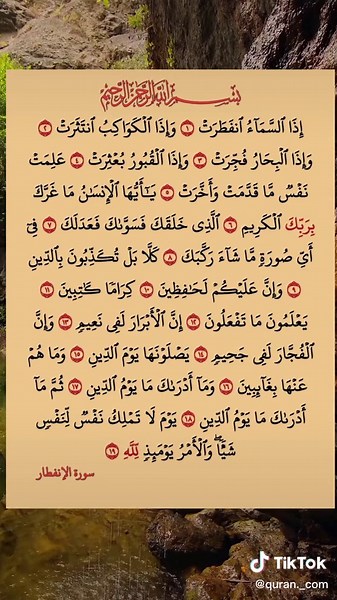 بِسْمِ ٱللَّهِ ٱلرَّحْمَٰنِ ٱلرَّحِيمِ
إِذَا ٱلسَّمَآءُ ٱنفَطَرَتْ ١ وَإِذَا ٱلْكَوَاكِبُ ٱنتَثَرَتْ ٢
وَإِذَا ٱلْبِحَارُ فُجِّرَتْ ٣ وَإِذَا ٱلْقُبُورُ بُعْثِرَتْ ٤ عَلِمَتْ
نَفْسٌ مَّا قَدَّمَتْ وَأَخَّرَتْ ٥ يَٰٓأَيُّهَا ٱلْإِنسَٰنُ مَا غَرَّكَ
بِرَبِّكَ ٱلْكَرِيمِ ٦ ٱلَّذِى خَلَقَكَ فَسَوَّىٰكَ فَعَدَلَكَ ٧ فِىٓ
أَىِّ صُورَةٍ مَّا شَآءَ رَكَّبَكَ ٨ كَلَّا بَلْ تُكَذِّبُونَ بِٱلدِّينِ
٩ وَإِنَّ عَلَيْكُمْ لَحَٰفِظِينَ ١٠ كِرَامًا كَٰتِبِينَ ١١
يَعْلَمُونَ مَا تَفْعَلُونَ ١٢ إِنَّ ٱلْأَبْرَارَ لَفِى نَعِيمٍ ١٣ وَإِنَّ
ٱلْفُجَّارَ لَفِى جَحِيمٍ ١٤ يَصْلَوْنَهَا يَوْمَ ٱلدِّينِ ١٥ وَمَا هُمْ
عَنْهَا بِغَآئِبِينَ ١٦ وَمَآ أَدْرَىٰكَ مَا يَوْمُ ٱلدِّينِ ١٧ ثُمَّ مَآ
أَدْرَىٰكَ مَا يَوْمُ ٱلدِّينِ ١٨ يَوْمَ لَا تَمْلِكُ نَفْسٌ لِّنَفْسٍ
شَيْـًٔا ۖ وَٱلْأَمْرُ يَوْمَئِذٍ لِّلَّهِ ١٩
سورة الإنفطار
TikTok
@quran._com